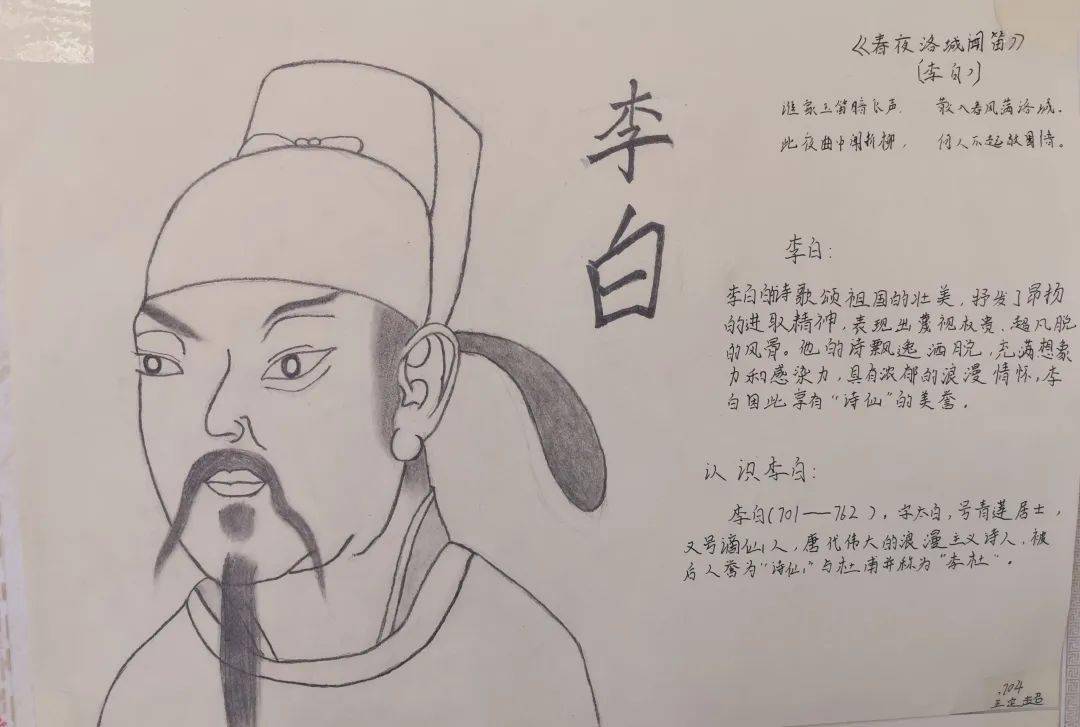 李白
《春夜洛城闻笛》
(李白)
谁家玉笛暗飞声. 散入春风满洛城.
此夜曲中闻折柳, 何人不起故园情。
李白:
李白的诗歌颂祖国的壮美, 抒发了昂扬
的进取精神, 表现出蔑视权贵、超凡脱
的风骨。他的诗飘逸洒脱, 充满想象
力和感染力, 具有浓郁的浪漫情怀, 李
白因此享有“诗仙”的美誉。
认识李白:
李白(701——762), 字太白, 号青莲居士,
又号谪仙人, 唐代伟大的浪漫主义诗人, 被
后人誉为“诗仙”与杜甫并称为“李杜”。
704